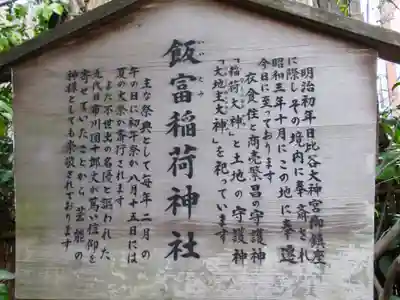 飯富稲荷神社
明治初年日比谷大神宮御鎮座
に際しその境内に奉斎され
昭和三年十月にこの地に奉遷
今日に至っております
衣食住と商売繁昌の守護神
「稲荷大神」と土地の守護神
「大地主大神」を祀っています
主な祭典として毎年二月の
午の日に初午祭が八月十五日には
夏の大祭が斎行されます
また不世出の名優と謳われた
九代目市川團十郎丈が篤い信仰を
寄せていたことから芸能の
神様としても崇敬されております